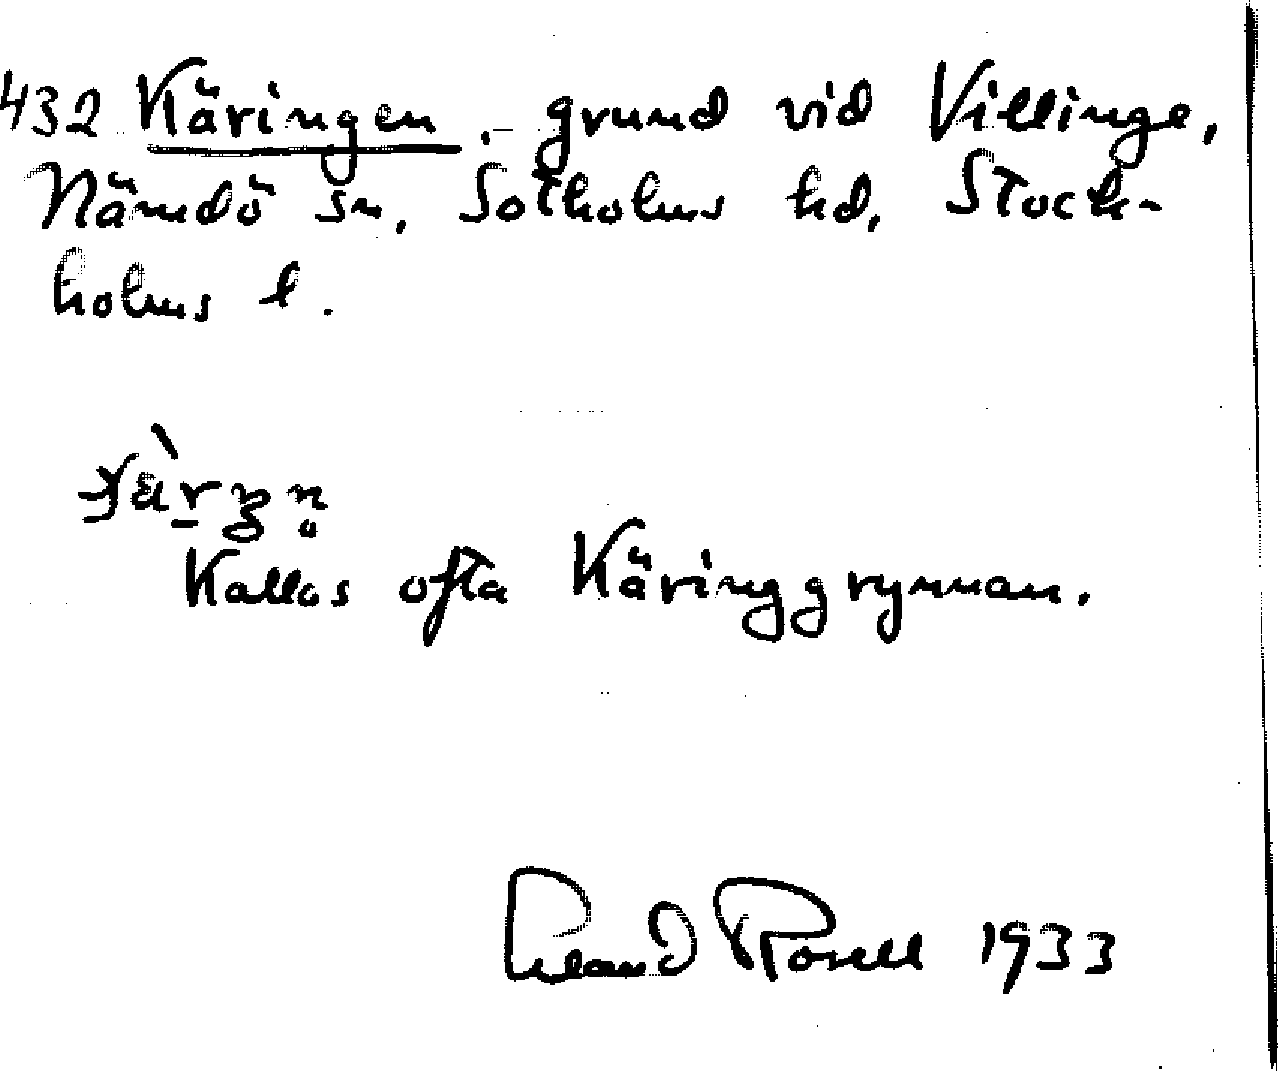 432 Käringen, grund vid Villinge,
Nämdö sn, Sotholms hd, Stock-
holms l.
Kallas ofta Käringgrynnan.
Rosell 1933